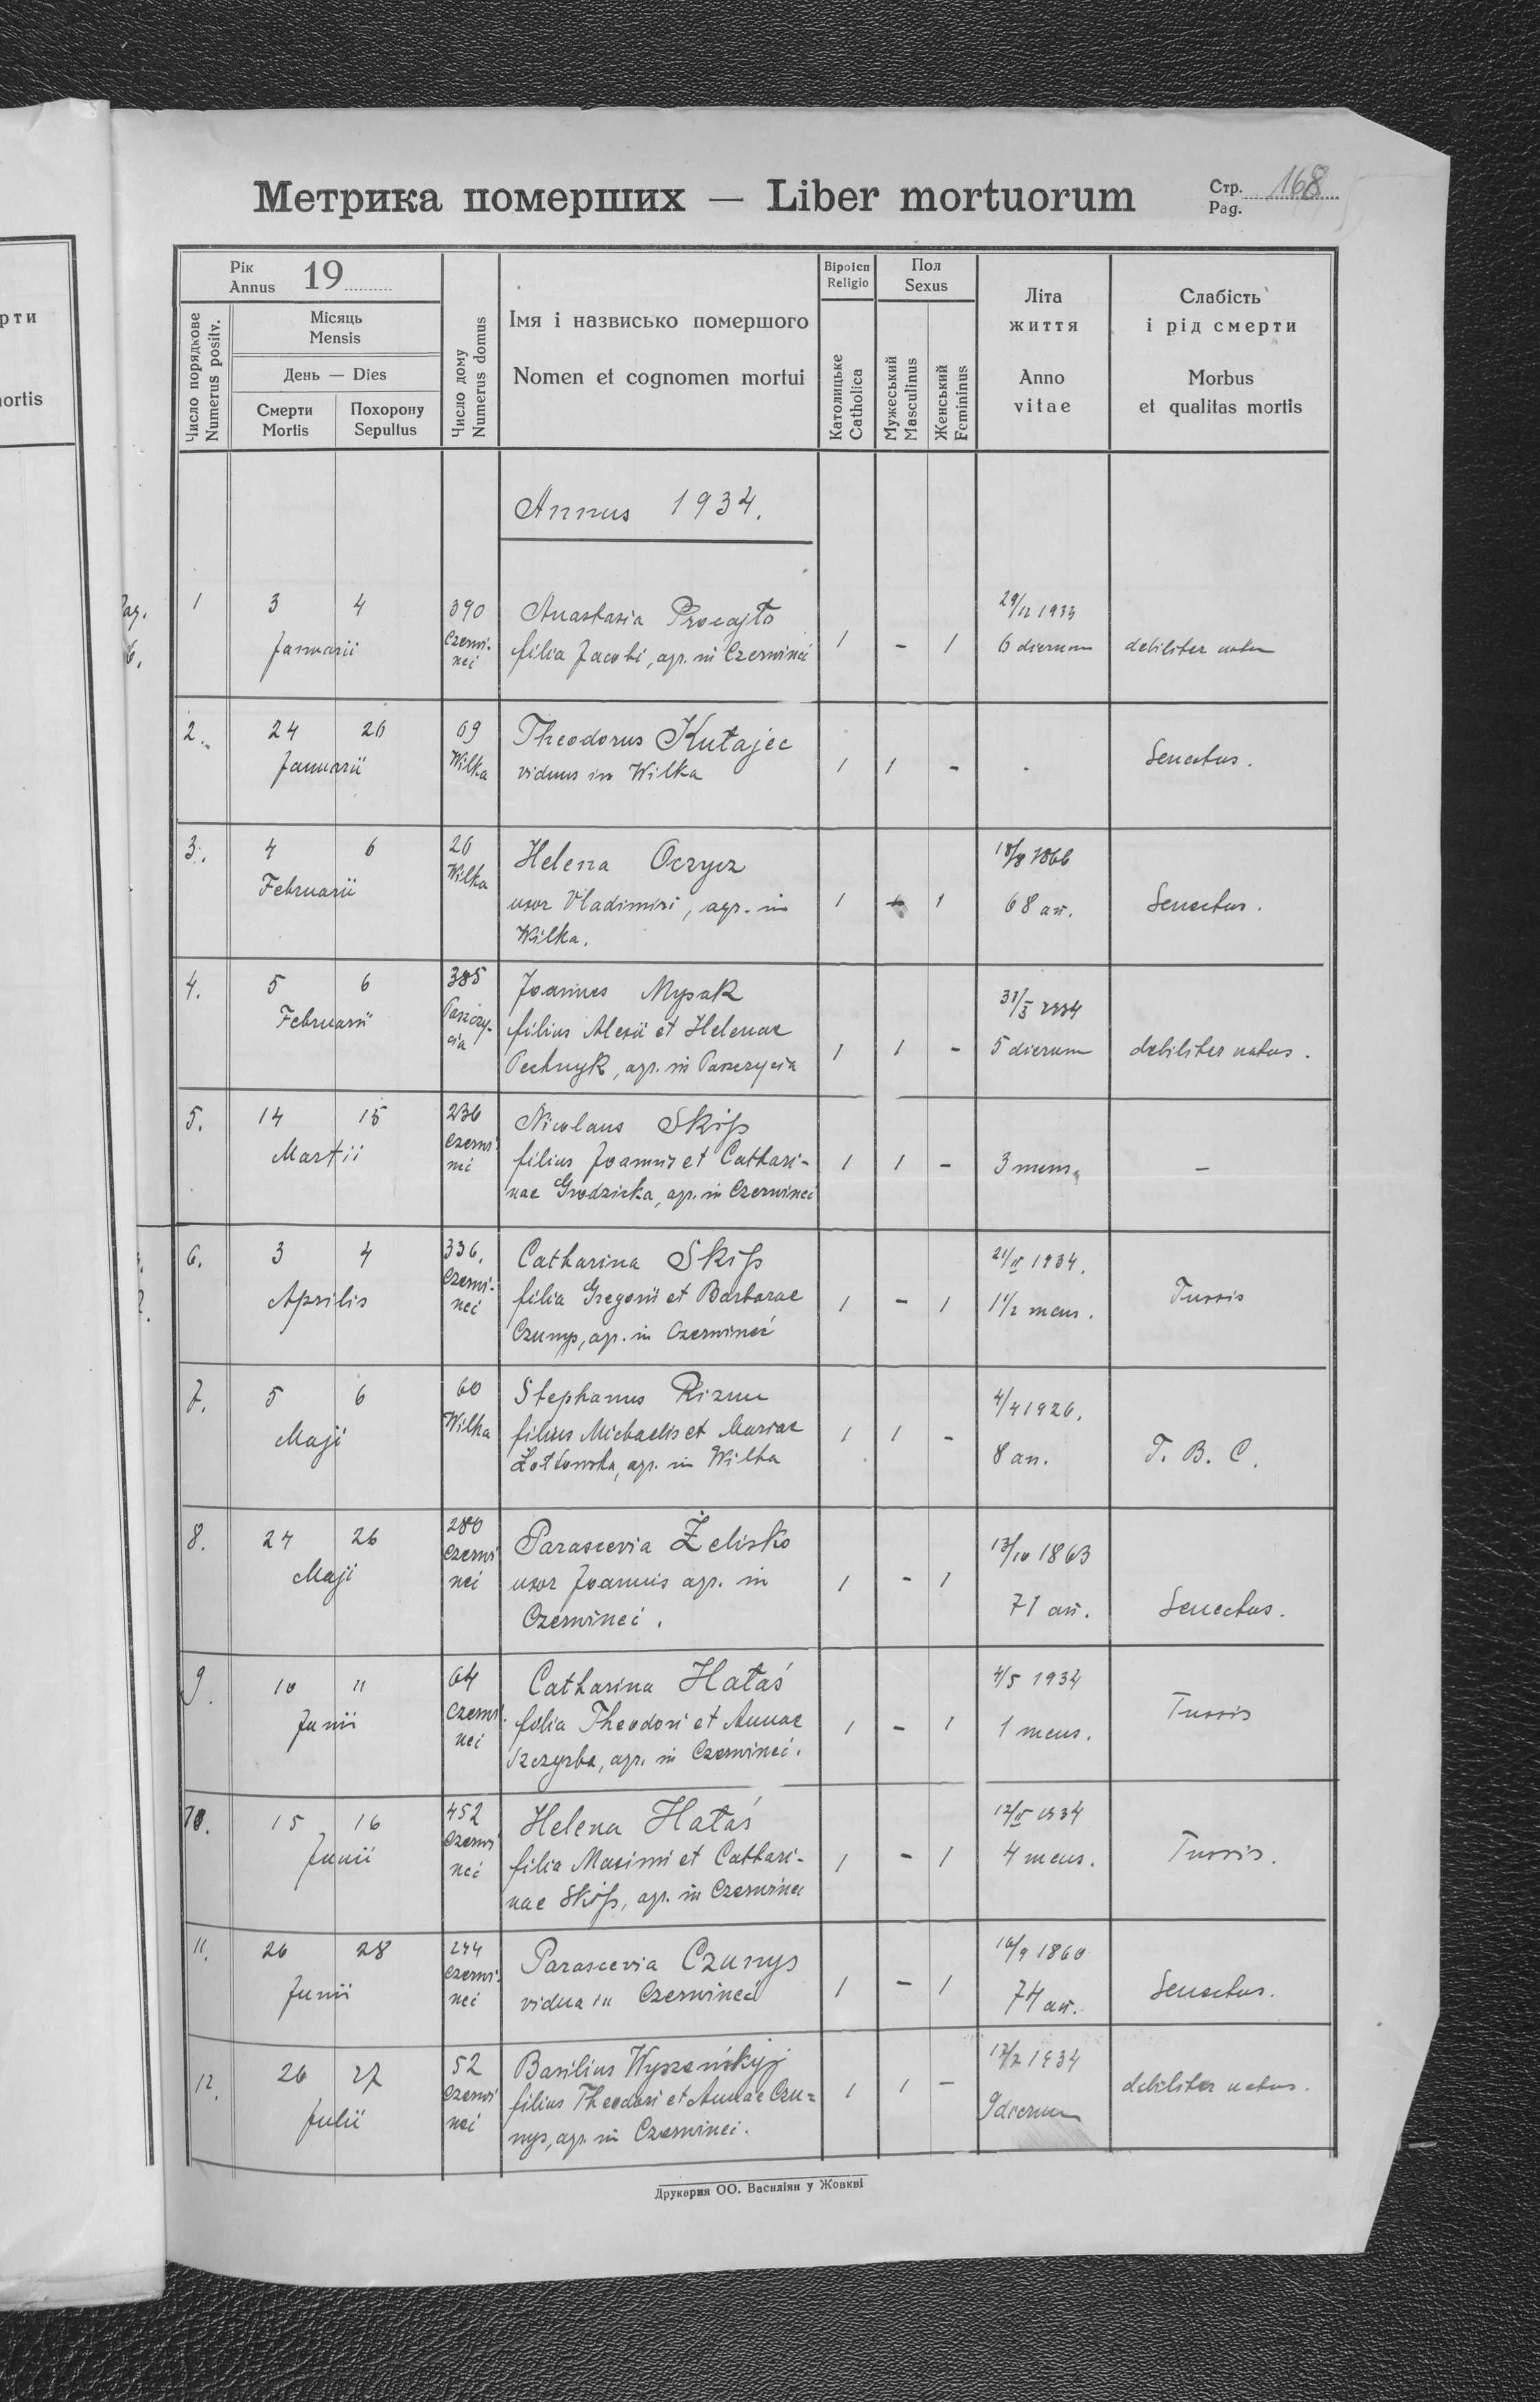 Метрика померших — Liber mortuorum
Стр. Pag. 168
Рік Annus 19
Число порядкове Numerus positv.
Місяць Mensis
День — Dies
Смерти Mortis
Похорону Sepultus
Число дому Numerus domus
Імя і назвисько помершого
Nomen et cognomen mortui
Віроісп Religio
Католицьке Catholica
Пол Sexus
Мужеський Masculinus
Женський Femininus
Літа життя
Anno vitae
Слабість і рід смерти
Morbus et qualitas mortis
рти
ortis
Annus 1934.
1 3 4 390 Anastasia 29/12 1933
Januarii Czerwi-nci filia Jacobi, agr. in Czerwinci 1 - 1 6 dierum debiliter
2. 24 26 69 Theodorus Kułajec
Januarii Wilka viduus in Wilka 1 1 - - Senectus.
3. 4 6 26 Helena Oczycz 18/8 1866
Februarii Wilka uxor Vladimiri, agr. in 1 - 1 68 an. Senectus.
Wilka.
4. 5 6 385 Joannes Mysak 31/I 1934
Februarii Paszczy-cia filius Alexii et Helenae
Pechnyk, agr. in Paszczycia 1 1 - 5 dierum debiliter natus.
5. 14 15 236 Nicolaus Skiss
Martii Czerwi nci filius Joannis et Cathari- 1 1 - 3 mens. -
nae Grodzicka, agr. in Czerwinci
6. 3 4 336. Catharina Skiss 21/II 1934.
Aprilis Czerwi-nci filia Gregorii et Barbarae 1 - 1 1 1/2 mens. Tussis
Czunys, agr. in Czerwinci
7. 5 6 60 Stephanus Rizun 4/4 1926.
Maji Wilka filius Michaelis et Mariae 1 1 - 8 an. T. B. C.
Żołtowska, agr. in Wilka
8. 24 26 280 Parascevia Żelisko 13/10 1863
Maji Czerwi nci uxor Joannis agr. in 1 - 1 71 an. Senectus.
Czerwinci.
9. 10 11 64 Catharina Hałaś 4/5 1934
Junii Czerwi nci filia Theodori et Annae 1 - 1 1 mens. Tussis
Szczyrba, agr. in Czerwinci.
10. 15 16 452 Helena Hałaś 12/II 1934
Junii Czerwi nci filia Maximi et Cathari- 1 - 1 4 mens. Tussis.
nae Skiss, agr. in Czerwinci
11. 26 28 244 Parascevia Czunys 1860
Junii Czerwi-nci vidua in Czerwinci 1 - 1 74 an. Senectus.
12. 26 27 52 Basilius Wyszeńskyj 1934
Julii Czerwi nci filius Theodori et Annae Czu= 1 1 - 9 dierum debiliter natus.
nys, agr. in Czerwinci.
Друкарня ОО. Василіян у Жовкві